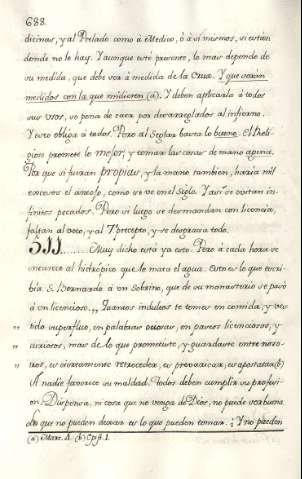 688.
dicinas, y al Prelado como á Medico, ó á si mesmos, si estan
donde no le hay. Y aunque esté presente, lo mas depende de
su medida, que debe ser á medida de la Cruz. Y que serán
medidos con la que midieren (a). Y deben aplicarla á todos
sus usos, so pena de caer por desarreglados al infierno.
Y esto obliga á todos. Pero al Seglar basta lo bueno. El Reli-
gioso promete lo mejor, y tomar las cosas de mano agena.
Por que si fueran propias, y la mano tambien, haria mil
excesos el antojo, como se ve en el siglo. Y asi se evitan in-
finitos pecados. Pero si luego se desmandan con licencia,
faltan al voto, y al 7 precepto, y se desgracia todo.
511....... Muy dicho está ya esto. Pero á cada hora se
encarece al hidrópico que le mata el agua. Esto es lo que escri-
bia S. Bernardo á un Sobrino, que de su monasterio se pasó
á un licencioso. „ Quantos indultos te tomes en comida, y ves-
„ tido superfluo, en palabras ociosas, en paseos licenciosos, y
„ curiosos, mas de lo que prometiste, y guardaste entre noso-
„ tros, es ciertamente retroceder, es prevaricar, es apostatar (b)
A nadie favorece su maldad. Todos deben cumplir su profesi-
on. Dispensa, ni cosa que no venga de Dios, no puede ser buena
Lo que no pueden dexar es lo que pueden tomar. ¿Y no pueden
(a) Marc. 4. (b) Epist. 1.